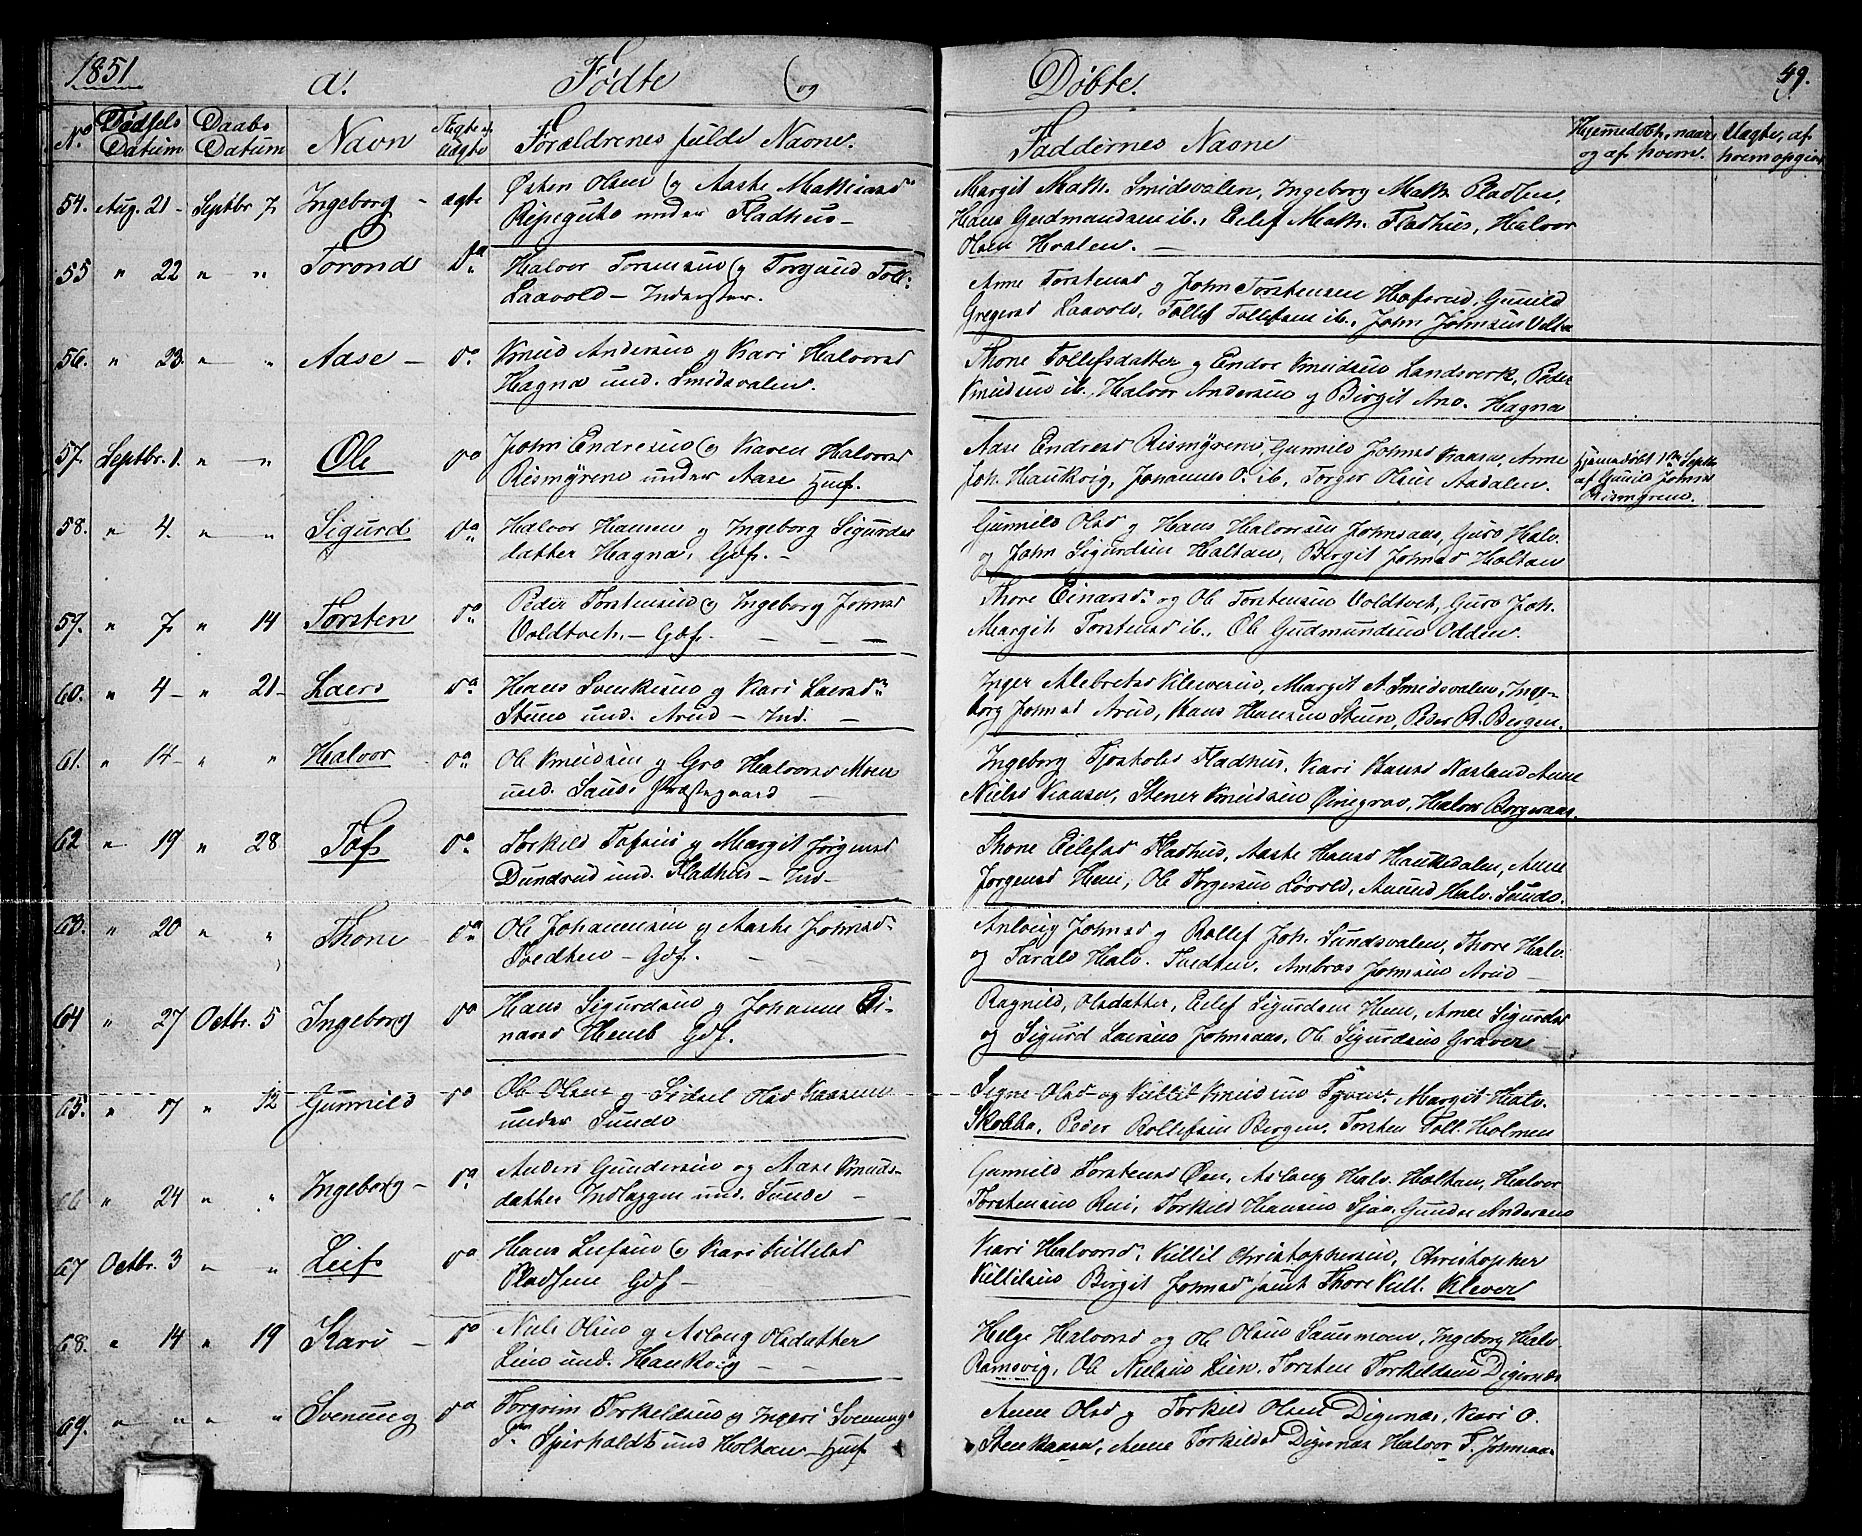 1851 a. Fødte og Døbte. 49.
No Fødsels Datum Daabs Datum Navn Ægte el. uægte Forældrenes fulde Navne. Faddernes Navne Hjemmedøbt, naar og af hvem. Uægte, af hvem opgivet
54. Aug. 21 - Septbr 7 Ingeborg - ægte Østen Olsen og Aaste Mathisd.
under Fladhus - Margit Math. Smidsvalen, Ingeborg Math. Pladsen,
Hans Gudmundsen ib., Eilef Math. Fladhus, Halvor
Olsen Hvalen. -
55 " 22 " " Torond Do Halvor Torensen og Torgund Toll.
Laavold - Inderster. Anne Torstensd og John Torstensen Haferud, Gunild
Gregersd Laavold, Tollef Tollefsen ib., John Johnsen
56. " 23 " " Aase - Do Knud Andersen og Kari Halvorsd
Hagna und. Smidsvalen. Thone Tollefsdatter og Endre Knudsen Landsverk, Peder
Knudsen ib., Halvor Andersen og Birgit And. Hagna
57. Septbr. 1. " " Ole Do John Endresen og Karen Halvorsd
Rismyrene under Aase Husf. Aase Endresd Rismyrene, Gunnild Johnsd Kaasa, Anne
Joh. Haukvig, Johannes O. ib, Torger Olsen Aadalen. hjemmedøbt 1ste Septbr
af Gunild Johnsd
Rismyrene.
58. " 4. " " Sigurd Do Halvor Hansen og Ingeborg Sigurds
datter Hagna, Gdf. - Gunnild Olsd og Hans Halvorsen Johnsaas, Guro Halv.
og John Sigurdsen Holtan, Birgit Johnsd Holtan
59. " 7 " 14 Torsten Do Peder Torstensen og Ingeborg Johnsd
Voldtvet. - Gdf. - - - Thore Einarsd. og Ole Torstensen Voldtvet, Guro Joh.
Margit Torstensd ib., Ole Gudmundsen Odden.
60. " 4 - " 21 - Laers Do Hans Svenkesen og Kari Laersd.
Steen und. Arud - Ind. - Inger Alebretsd Kleverud, Margit A. Smidsvalen, Inge-
borg Johnsd Arud, Hans Hansen Steen, Peder R. Bergen.
61. " 14 - " " Halvor - Do Ole Knudsen og Gro Halvorsd Moen
und. Saude Præstegaard - Ingeborg Tjostolsd Fladhus, Kari Hansd Nasland Anne
Nielsd Kaasen, Stener Knudsen Øinegrav, Halvor Borgesaas.
62 " 19 " 28 Tofs Do Torkild Tofsen og Margit Jørgensd
Dundrud und. Fladhus - Ind - Thone Eilefsd Fladhus, Aaste Hansd Haukedalen, Anne
Jørgensd Hem, Ole Torgersen Løvold, Amund Halv. Sundo.
63. " 20 " " Thone - Do Ole Johannesen og Aaste Johnsd.
Tvedten - Gdf. - - Anloug Johnsd og Rollef Joh. Sundsvalen, Thore Halv.
og Tarald Halv. Tvedten, Ambros Johnsen Arud -
64 " 27 Octbr. 5 Ingeborg Do Hans Sigurdsen og Johanne Ei-
narsd Hemb Gdf. Ragnild, Olsdatter, Eilef Sigurdsen Hem, Anne Sigurdsd
og Sigurd Laersen Johnsaas, Ole Sigurdsen Graver -
65. " 17 " 12 Gunnild Do Ole Olsen og Sidsel Olsd Kaasene
under Sundo Signe Olsd og Killil Knudsen Margit Halv.
Skobba, Peder Rollefsen Bergen, Torsten Toll. Holmen
66 " 24 " " Ingeborg - Do Anders Gundersen og Aase Knuds-
datter Indlaggen und. Sunde - Gunnild Torstensd Øen, Aslaug Halv. Holtan, Halvor
Torstensen Rui, Torkild Hansen Sjaa, Gunder Andersen
67 Octbr. 3 " " Leifs Do Hans Leifsen og Kari Killilsd
Pladsene Gdf - Kari Halvorsd. Killil Christophersen, Christopher
Killilsen Birgit Johnsd samt Thore Kill. Klever
68. " 14 " 19 Kari - Do Niels Olsen og Asloug Olsdatter
Lien und. Haukvig - - Helge Halvorsd og Ole Olsen Saunmoen, Ingeborg Halv.
Ramsvig, Ole Nielsen Lien, Torsten Torkeldsen Digernæs
69. " " " " Svenung Do Torgrim Torkeldsen og Ingeri Svenung-
Dtr Spirholdt und Holtan - Husf. Anne Olsd og Torkild Olsen Digernæs, Kari O.
Stenkaasa, Anne Torkildsd Digernæs Halvor T. Johnsaas